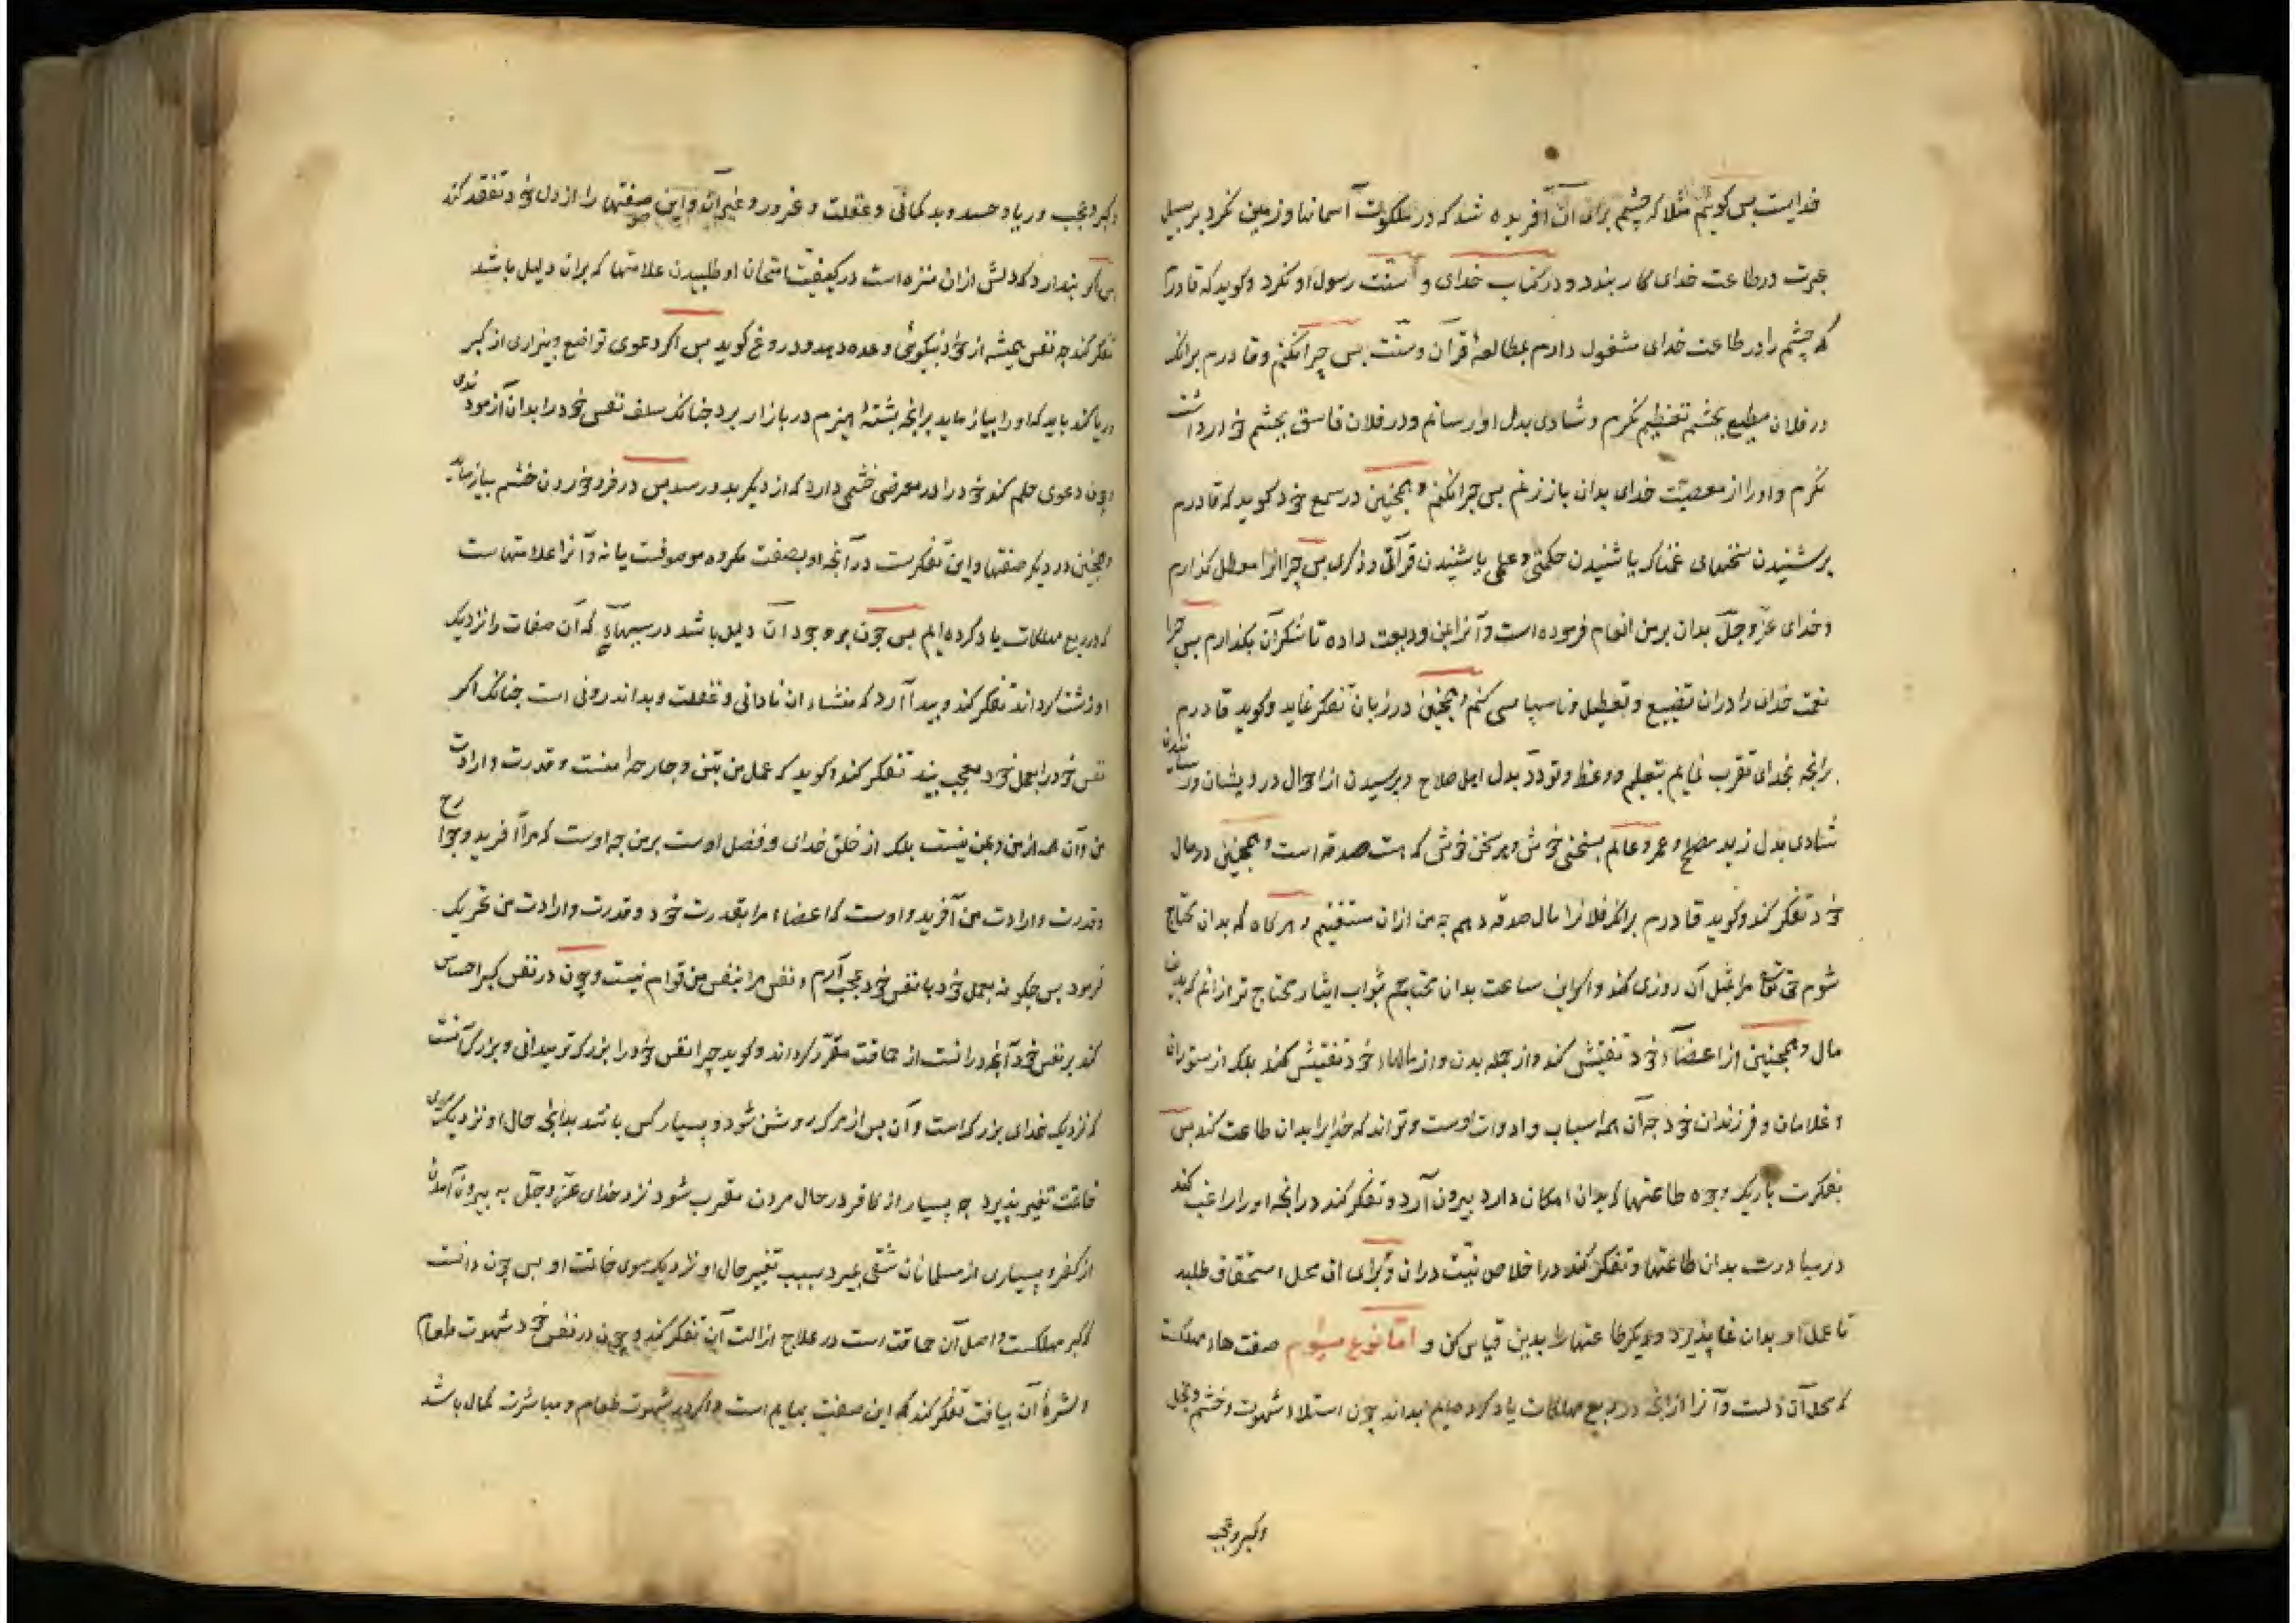 خدایست بس کویم مثلا که چشم برای آن آفریده شد که در ملکوت آسمانها و زمین نکرد بر سبیل
عبرت و در طاعت خدای کار بندد و در کتاب خدای و سنت رسول او نکرد و کوید که قادرم
که چشم را در طاعت خدای مشغول دارم بمطالعهٔ قرآن و سنت بس چرا نکنم و قادرم برانکه
در فلان مطیع بچشم تعظیم نکرم و شادی بدل او رسانم و در فلان فاسق بچشم خوارداشت
نکرم و او را از معصیت خدای بدان باز زنم بس چرا نکنم و همچنین در سمع خود کوید که قادرم
بر شنیدن سخنهای غمناک یا شنیدن حکمتی و علمی یا شنیدن قرآنی و ذکری بس چرا آنرا معطل کذارم
و خدای عزّ و جلّ بدان بر من انعام فرموده است و آنرا بمن ودیعت داده تا شکر آن بکذارم بس چرا
نعمت خدای را دران تضییع و تعطیل و ناسپاسی کنم و همچنین در زبان تفکر نماید و کوید قادرم
برانچه بخدای تقرب نمایم بتعلیم و وعظ و تودّد بدل اهل صلاح و پرسیدن از احوال درویشان و رسانیدن
شادی بدل زید مصلح و عمرو عالم بسخنی خوش و هر سخن خوش که هست صدقه است و همچنین در مال
خود تفکر کند و کوید قادرم برانکه فلانرا مال صدقه دهم چه من ازان مستغنیم و هرکاه که بدان محتاج
شوم حق تعالی مرا مثل آن روزی کند و اکر این ساعت بدان محتاجم بثواب ایثار محتاج تر ازانم که بدین
مال و همچنین از اعضاء خود تفتیش کند و از جمله بدن و از مالهاء خود تفتیش کند بلکه از ستوران
و غلامان و فرزندان خود چه آن همه اسباب و ادوات اوست و تواند که خدایرا بدان طاعت کند بس
بفکرت باریک وجوه طاعتها که بدان امکان دارد بیرون آرد و تفکر کند درانچه او را راغب کند
در مبادرت بدان طاعتها و تفکر کند در اخلاص نیت دران و برای ان محل استحقاق طلبد
تا عمل او بدان نما پذیرد و دیکر طاعتها را بدین قیاس کن و اما نوع سیّوم صفت هاء مهلکست
که محل آن دلست و آنرا ازانچه در ربع مهلکات یاد کرده‌ایم بداند چون استیلاء شهوت و خشم و بخل
وکبر و عجب
و کبر و عجب و ریا و حسد و بد کمانی و غفلت و غرور و غیر آن و این صفتها را از دل خود تفقد کند
بس اکر پندارد که دلش ازان منزه است در کیفیت امتحان او طلبیدن علامتها که بران دلیل باشد
تفکر کند چه نفس همیشه از خود نیکوئی وعده دهد و دروغ کوید بس اکر دعوی تواضع و بیزاری از کبر
و ریا کند باید که او را بیازماید برانچه پشتهٔ هیزم در بازار برد چنانک سلف نفس خود را بدان آزمودندی
و چون دعوی حلم کند خود را در معرض خشمی دارد که از دیکر بدو رسد بس در فرو خوردن خشم بیازماید
و همچنین در دیکر صفتها و این تفکرست درآنچه او بصفت مکروه موصوفست یا نه و آنرا علامتهاست
که در ربع مهلکات یاد کرده ایم بس چون بر وجود آن دلیل باشد در سببهائی که آن صفات را نزدیک
او زشت کرداند تفکر کند و پیدا آرد که منشاء ان نادانی و غفلت و بد اندرونی است چنانک اکر
نفس خود را بعمل خود معجب بیند تفکر کند و کوید که عمل من بتن و جارحهٔ منست و قدرت و ارادت
من و آن همه از من و بمن نیست بلکه از خلق خدای و فضل اوست بر من چه اوست که مرا آفرید و جوارح
و قدرت و ارادت من آفرید و اوست که اعضاء مرا بقدرت خود و قدرت و ارادت من تحریک
فرمود بس چکونه بعمل خود یا نفس خود عجب آرم و نفس مرا بنفس من قوام نیست و چون در نفس کبر احساس
کند بر نفس خود آنچه درانست از حماقت مقرّر کرداند و کوید چرا نفس خود را بزرکتر میدانی و بزرک آنست
که نزدیک خدای بزرکست و آن بس از مرک روشن شود و بسیار کس باشد
خاتمت تغییر پذیرد چه بسیار از کافر در حال مردن مقرب شود نزد خدای عزّ و جلّ به بیرون آمدن
از کفر و بسیاری از مسلمانان شقی بمیرد بسبب تغییر حال او نزدیک سوی خاتمت او بس چون دانست
که کبر مهلکست و اصل آن حماقت است در علاج ازالت آن تفکر کند و چون در نفس خود شهوت طعام
و شرهٔ آن بیافت تفکر کند که این صفت بهایم است و اکر در شهوت طعام و مباشرت کمال باشد